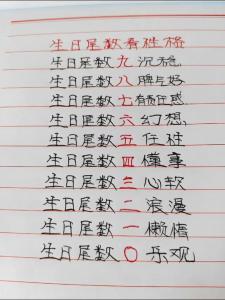 生日尾数看性格
生日尾数九沉稳
生日尾数八脾气好
生日尾数七有责任感
生日尾数六幻想
生日尾数五任性
生日尾数四懂事
生日尾数三心软
生日尾数二浪漫
生日尾数一懒惰
生日尾数0乐观